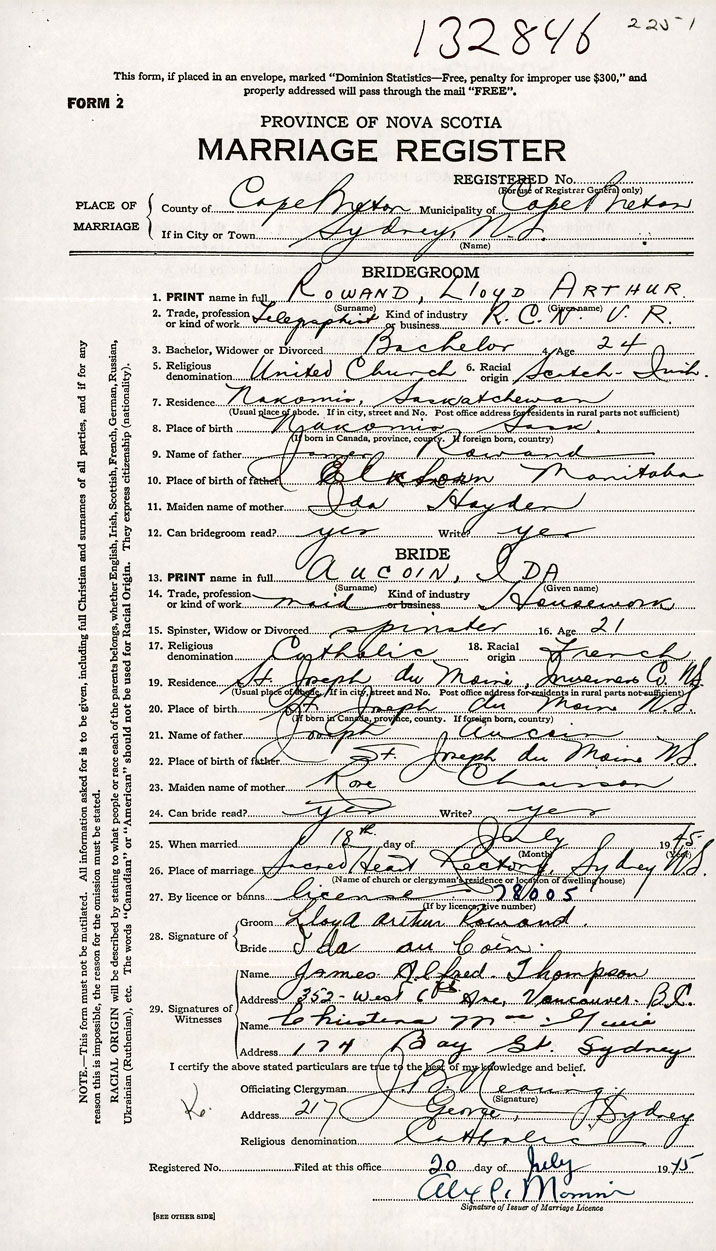 132846 2251
This form, if placed in an envelope, marked “Dominion Statistics—Free, penalty for improper use $300,” and
properly addressed will pass through the mail “FREE”.
FORM 2
PROVINCE OF NOVA SCOTIA
MARRIAGE REGISTER
REGISTERED No.
(For use of Registrar General only)
PLACE OF MARRIAGE
County of Cape Breton Municipality of Cape Breton
If in City or Town Sydney, N.S.
(Name)
BRIDEGROOM
1. PRINT name in full ROWAND, LLOYD ARTHUR.
(Surname) (Given name)
2. Trade, profession or kind of work Telegraphist Kind of industry or business R.C.N.V.R.
3. Bachelor, Widower or Divorced Bachelor 4. Age 24
5. Religious denomination United Church 6. Racial origin Scotch-Irish.
7. Residence Nakomis, Saskatchewan
(Usual place of abode. If in city, street and No. Post office address for residents in rural parts not sufficient)
8. Place of birth Nakomis Sask.
(If born in Canada, province, county. If foreign born, country)
9. Name of father James Rowand
10. Place of birth of father Elkhorn Manitoba
11. Maiden name of mother Ida Hayden
12. Can bridegroom read? yes Write? yes
BRIDE
13. PRINT name in full AUCOIN, IDA
(Surname) (Given name)
14. Trade, profession or kind of work maid Kind of industry or business Housework
15. Spinster, Widow or Divorced spinster 16. Age 21
17. Religious denomination Catholic 18. Racial origin French
19. Residence St. Joseph du Moine, Inverness Co. N.S.
(Usual place of abode. If in city, street and No. Post office address for residents in rural parts not sufficient)
20. Place of birth St. Joseph du Moine N.S.
(If born in Canada, province, county. If foreign born, country)
21. Name of father Joseph Aucoin
22. Place of birth of father St. Joseph du Moine N.S.
23. Maiden name of mother Rose Chaisson
24. Can bride read? yes Write? yes
25. When married 18th day of July 1945
(Month) (Year)
26. Place of marriage Sacred Heart Rectory, Sydney N.S.
(Name of church or clergyman's residence or location of dwelling house)
27. By licence or banns license 78005
(If by licence, give number)
28. Signature of
Groom Lloyd Arthur Rowand.
Bride Ida au Coin.
29. Signatures of Witnesses
Name James Alfred Thompson
Address 352-West 6th Ave, Vancouver. B.C.
Name Christena
Address 174 Bay St. Sydney
I certify the above stated particulars are true to the best of my knowledge and belief.
Officiating Clergyman J.B.
(Signature)
Address 217 George, Sydney
Religious denomination Catholic
Registered No. Filed at this office 20 day of July 1945
Alex
Signature of Issuer of Marriage Licence
[SEE OTHER SIDE]
NOTE.—This form must not be mutilated. All information asked for is to be given, including full Christian and surnames of all parties, and if for any
reason this is impossible, the reason for the omission must be stated.
RACIAL ORIGIN will be described by stating to what people or race each of the parents belongs, whether English, Irish, Scottish, French, German, Russian,
Ukrainian (Ruthenian), etc. The words “Canadian” or “American” should not be used for Racial Origin. They express citizenship (nationality).